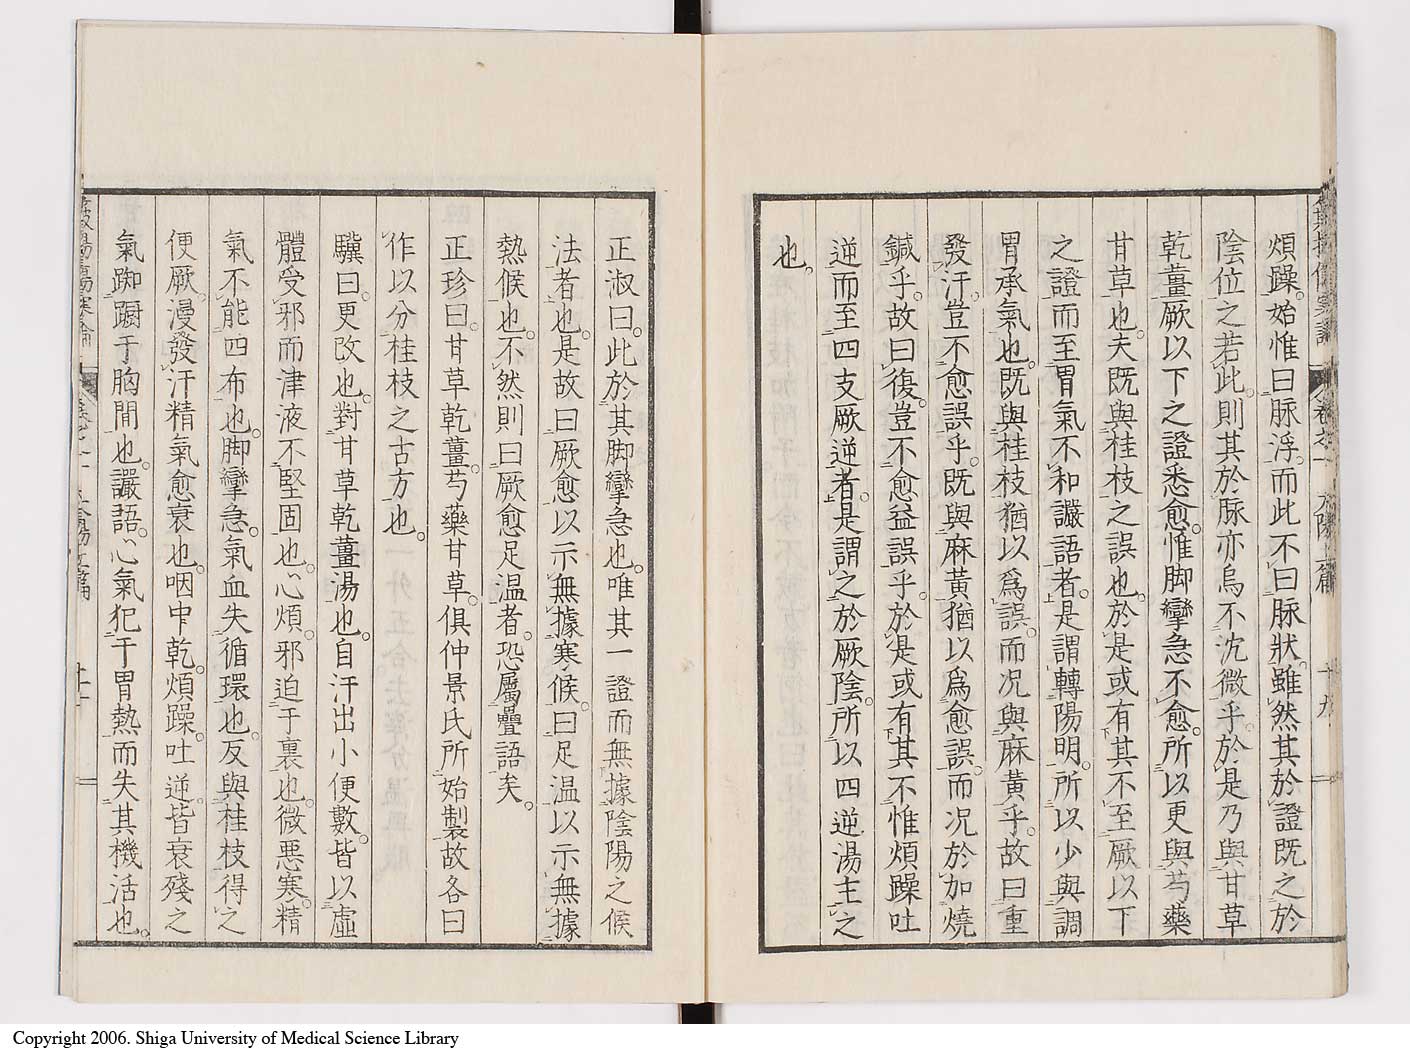 煩躁。始惟曰脉浮。而此不曰脉狀。雖然其於證既之於
陰位之若此。則其於脉亦烏不沈微乎。於是乃與甘草
乾薑厥以下之證悉愈。惟脚攣急不愈。所以更與芍藥
甘草也。夫既與桂枝之誤也。於是或有其不至厥以下
之證而至胃氣不和讝語者。是謂轉陽明。所以少與調
胃承氣也。既與桂枝猶以爲誤。而况與麻黃乎。故曰重
發汗。豈不愈誤乎。既與麻黃猶以爲愈誤。而况於加燒
鍼乎。故曰復。豈不愈益誤乎。於是或有其不惟煩躁吐
逆而至四支厥逆者。是謂之於厥陰。所以四逆湯主之
也。
正淑曰。此於其脚攣急也。唯其一證而無據陰陽之候
法者也。是故曰厥愈以示無據寒候。曰足温以示無據
熱候也。不然則曰厥愈足温者。恐屬疊語矣。
正珍曰。甘草乾薑。芍藥甘草。俱仲景氏所始製故各曰
作以分桂枝之古方也。
驥曰。更改也。對甘草乾薑湯也。自汗出小便數。皆以虛
體受邪而津液不堅固也。心煩。邪迫于裏也。微惡寒。精
氣不能四布也。脚攣急。氣血失循環也。反與桂枝得之
便厥。漫發汗精氣愈衰也。咽中乾。煩躁吐逆。皆衰殘之
氣踟躕于胸間也。讝語。心氣犯于胃熱而失其機活也。